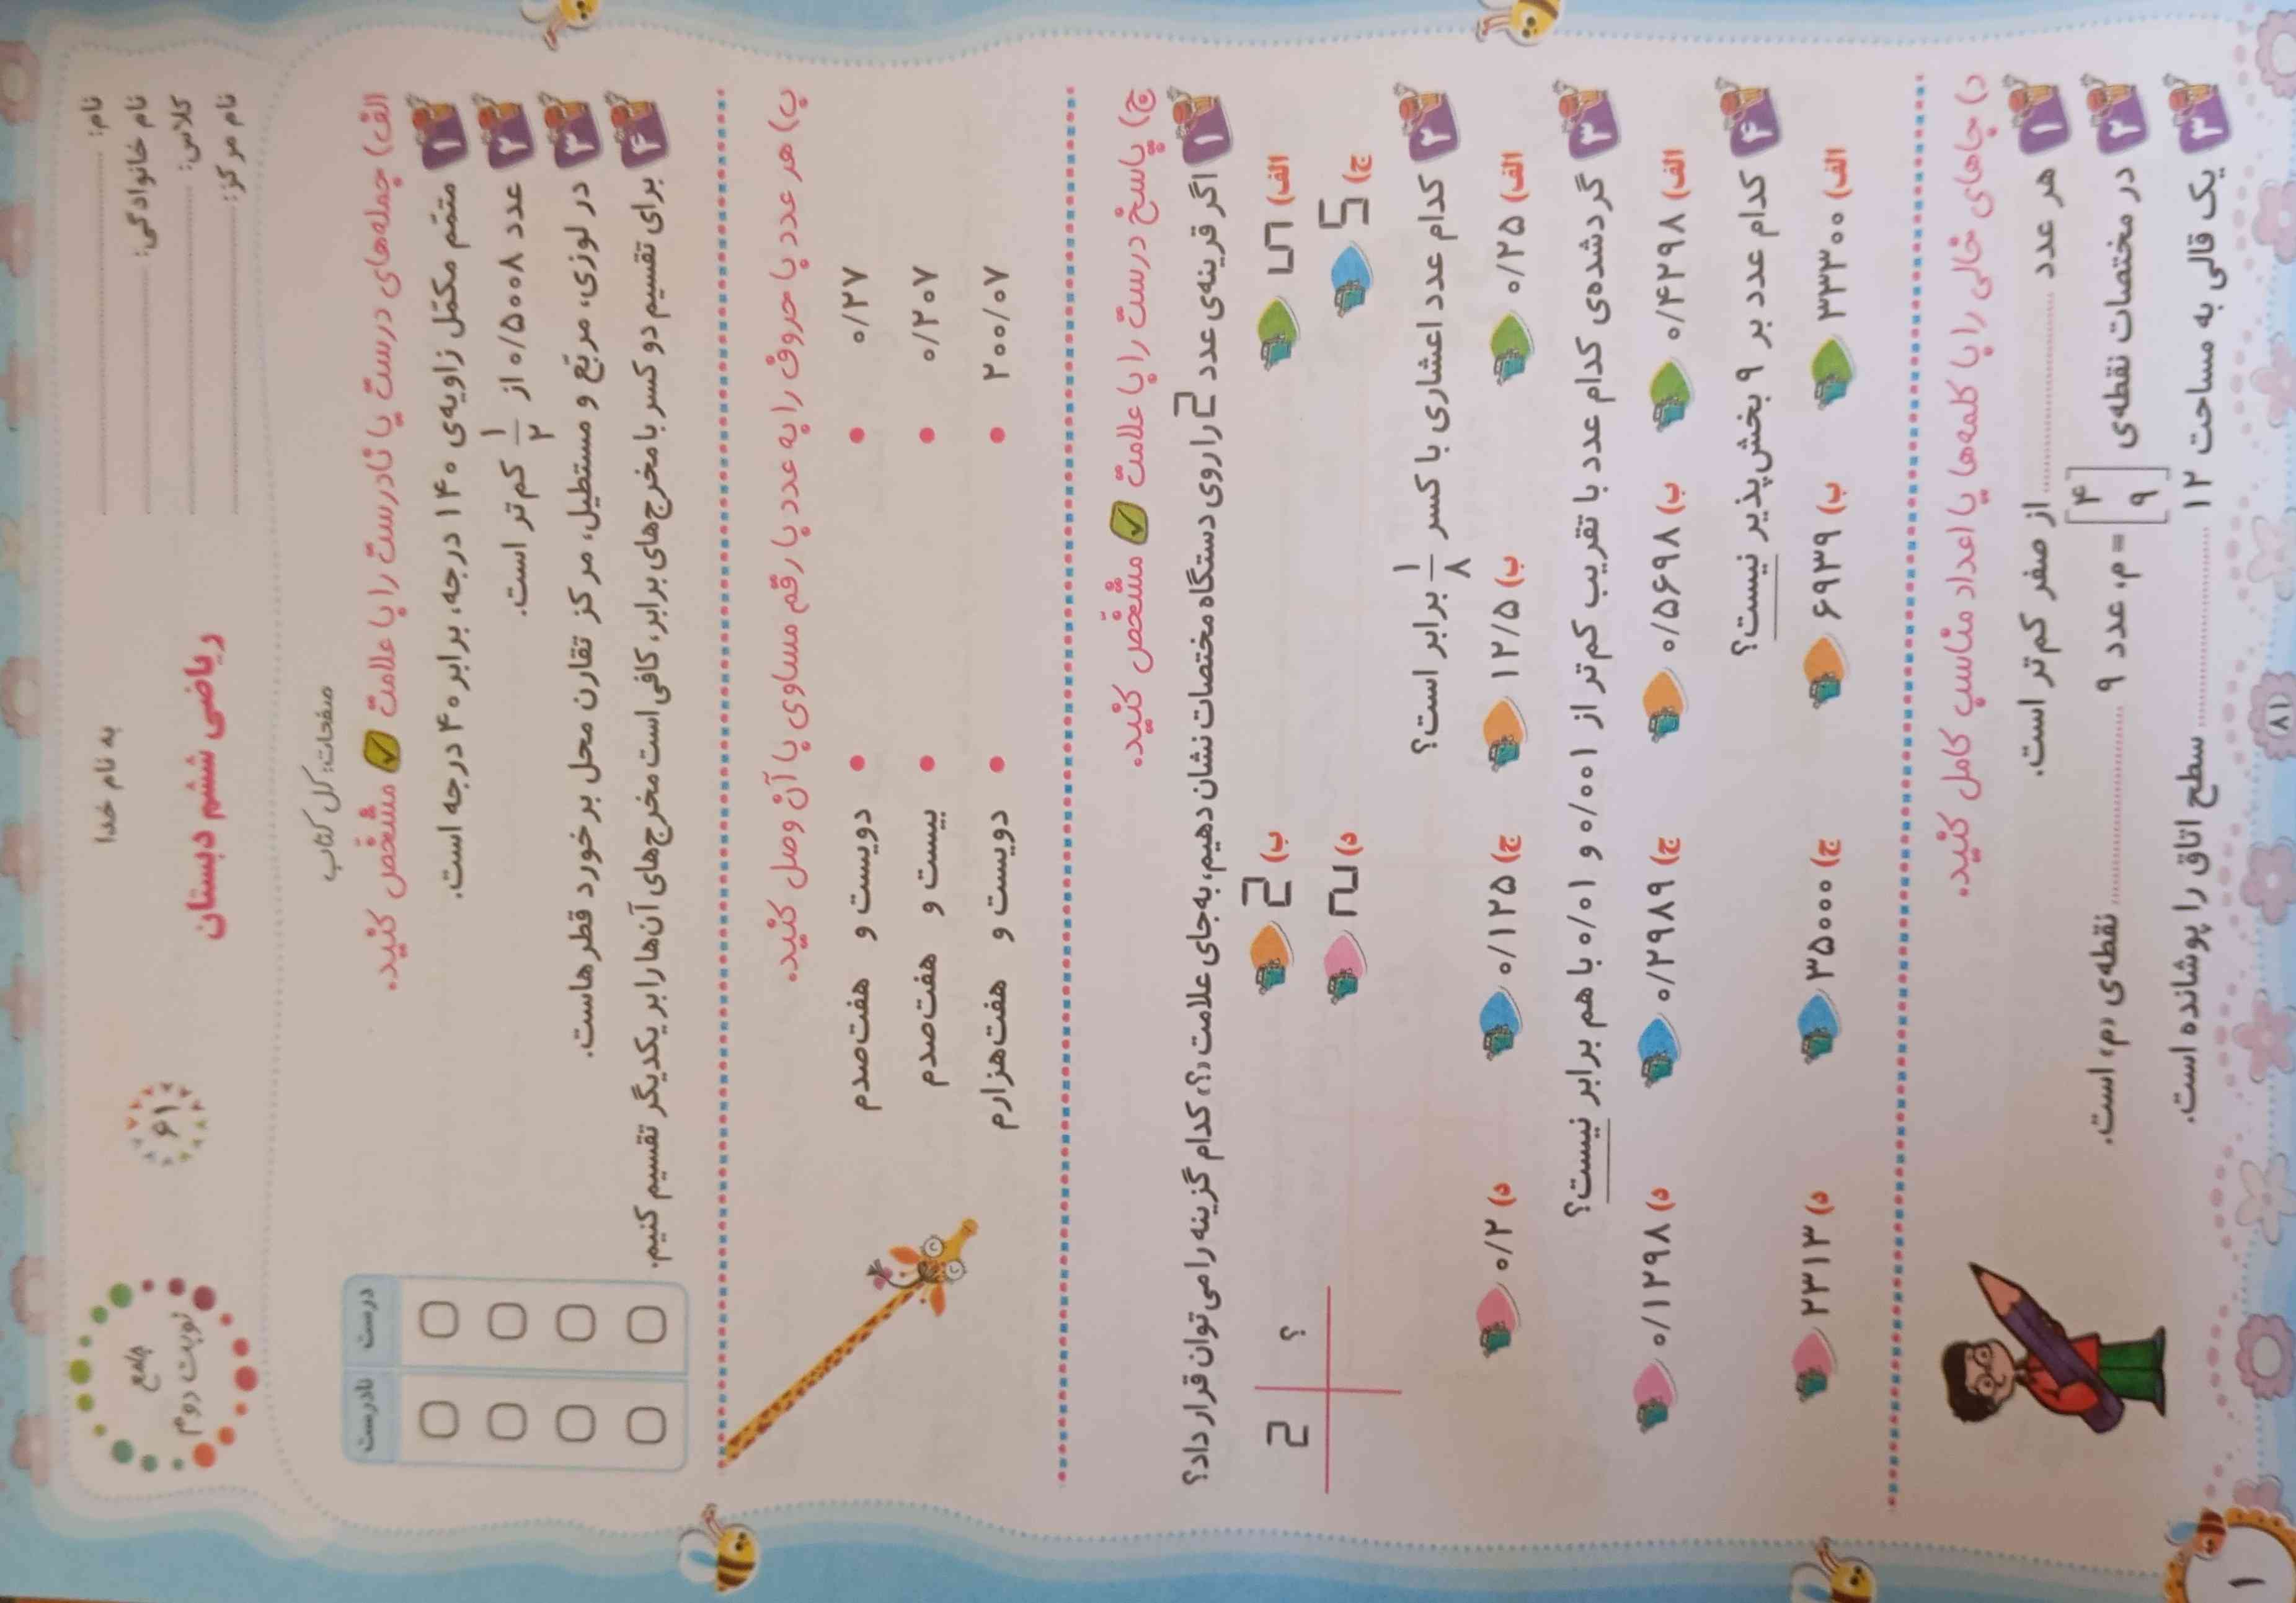 به نام خدا
نام:
نام خانوادگی:
کلاس:
نام مرکز:
ریاضی ششم دبستان
۶۱
جامع
نوبت دوم
صفحات: کل کتاب
الف) جمله‌های درست یا نادرست را با علامت ✓ مشخص کنید.
درست نادرست
۱ متمّم مکمّل زاویه‌ی ۱۴۰ درجه، برابر ۴۰ درجه است.
۲ عدد ۰/۵۰۰۸ از ۱/۲ کم‌تر است.
۳ در لوزی، مربّع و مستطیل، مرکز تقارن محل برخورد قطرهاست.
۴ برای تقسیم دو کسر با مخرج‌های برابر، کافی است مخرج‌های آن‌ها را بر یکدیگر تقسیم کنیم.
ب) هر عدد با حروف را به عدد با رقم مساوی با آن وصل کنید.
۰/۲۷ • • دویست و هفت‌صدم
۰/۲۰۷ • • بیست و هفت‌صدم
۲۰۰/۰۷ • • دویست و هفت‌هزارم
ج) پاسخ درست را با علامت ✓ مشخص کنید.
۱ اگر قرینه‌ی عدد 2 را روی دستگاه مختصات نشان دهیم، به‌جای علامت «؟» کدام گزینه را می‌توان قرار داد؟
الف) 5 ب) 2
ج) 5 د) 2
2 ؟
۲ کدام عدد اعشاری با کسر ۱/۸ برابر است؟
الف) ۰/۲۵ ب) ۱۲/۵ ج) ۰/۱۲۵ د) ۰/۲
۳ گردشده‌ی کدام عدد با تقریب کم‌تر از ۰/۰۰۱ و ۰/۰۱ با هم برابر نیست؟
الف) ۰/۴۲۹۸ ب) ۰/۵۶۹۸ ج) ۰/۲۹۸۹ د) ۰/۱۲۹۸
۴ کدام عدد بر ۹ بخش‌پذیر نیست؟
الف) ۳۳۳۰۰ ب) ۶۹۳۹ ج) ۳۵۰۰۰ د) ۲۳۱۳
د) جاهای خالی را با کلمه‌ها یا اعداد مناسب کامل کنید.
۱ هر عدد .......... از صفر کم‌تر است.
۲ در مختصات نقطه‌ی [۴ ۹] = م، عدد ۹ .......... نقطه‌ی «م» است.
۳ یک قالی به مساحت ۱۲ .......... سطح اتاق را پوشانده است.
۸۱
۱